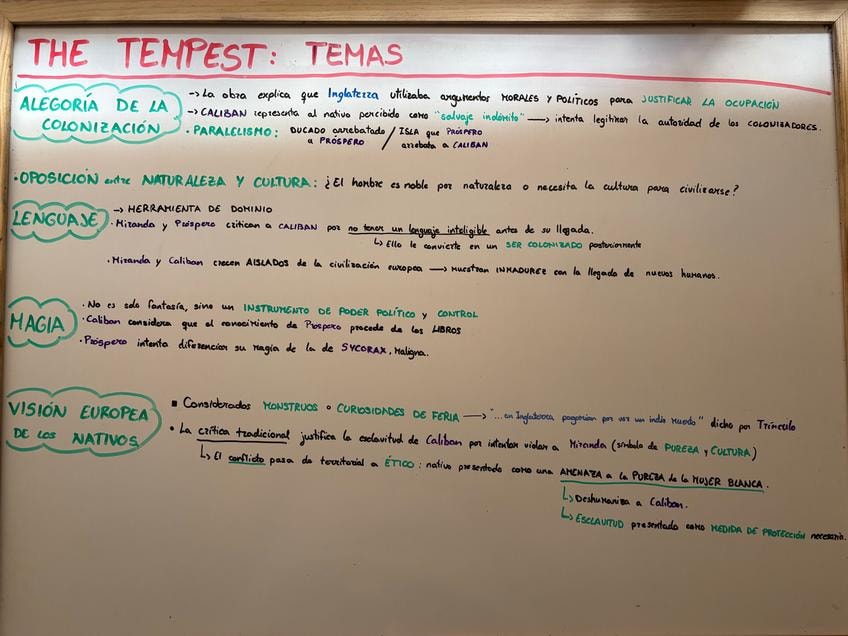 THE TEMPEST: TEMAS
ALEGORÍA DE LA COLONIZACIÓN
→ La obra explica que Inglaterra utilizaba argumentos MORALES Y POLÍTICOS para JUSTIFICAR LA OCUPACIÓN
→ CALIBAN representa al nativo percibido como "salvaje indómito" → intenta legitimar la autoridad de los COLONIZADORES.
• PARALELISMO: DUCADO arrebatado a PRÓSPERO / ISLA que PRÓSPERO arrebata a CALIBAN
• OPOSICIÓN entre NATURALEZA Y CULTURA: ¿El hombre es noble por naturaleza o necesita la cultura para civilizarse?
LENGUAJE
→ HERRAMIENTA DE DOMINIO
• Miranda y Próspero critican a CALIBAN por no tener un lenguaje inteligible antes de su llegada.
↳ Ello le convierte en un SER COLONIZADO posteriormente
• Miranda y Caliban crecen AISLADOS de la civilización europea → muestran INMADUREZ con la llegada de nuevos humanos.
MAGIA
• No es solo fantasía, sino un INSTRUMENTO DE PODER POLÍTICO y CONTROL
• Caliban considera que el conocimiento de Próspero procede de los LIBROS
• Próspero intenta diferenciar su magia de la de SYCORAX, maligna.
VISIÓN EUROPEA DE LOS NATIVOS
▪ Considerados MONSTRUOS o CURIOSIDADES DE FERIA → "...en Inglaterra pagarían por ver un indio muerto" dicho por Trínculo
• La crítica tradicional justifica la esclavitud de Caliban por intentar violar a Miranda (símbolo de PUREZA y CULTURA)
↳ El conflicto pasa de territorial a ÉTICO: nativo presentado como una AMENAZA a la PUREZA de la MUJER BLANCA.
↳ Deshumaniza a Caliban.
↳ ESCLAVITUD presentado como MEDIDA DE PROTECCIÓN necesaria.